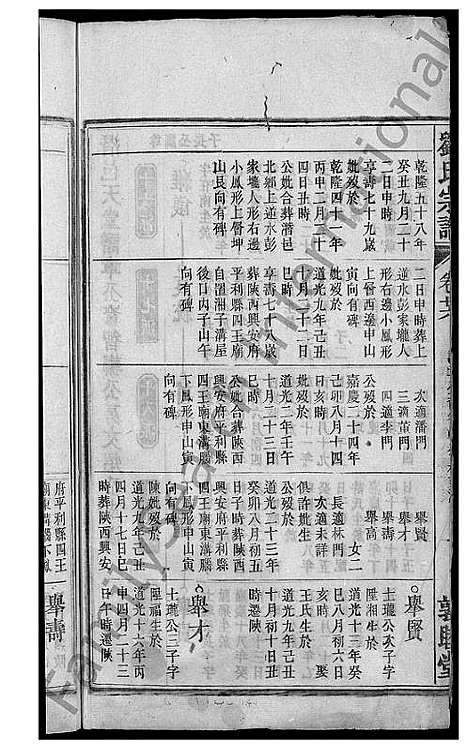 劉氏宗譜
卷
敦睦堂
乾隆五十八年
癸丑九月二十
二日申時歿
享壽七十九歲
妣歿於
乾隆四十一年
丙申二月三十
四日丑時
公妣合葬潛邑
北鄉上道水彭
家墩人形右邊
小鳳形上酉坤
山艮向有碑
二日申時葬上
道水彭家墩人
形右邊小鳳形
上酉西邊申山
寅向有碑
妣歿於
道光九年己丑
十月二十二日
巳時
享壽七十八歲
葬陝西興安府
平利縣四王廟
自溜湘子溝屋
後口內子山午
向有碑
次適潘門
三適葉門
四適李門
公歿於
嘉慶二十四年
己卯八月十四
日亥時
妣歿於
道光二年壬午
十月二十三日
巳時
公妣合葬陝西
興安府平利縣
四王廟東溝腦
下鳳形申山寅
向有碑
舉賢
舉才
舉壽
舉高
女二
長適林門
次適未詳
俱許妣生
公歿於
道光二十三年
癸卯八月初五
日子時葬陝西
興安府平利縣
四王廟東溝腦
下鳳形申山寅
向有碑
陳妣歿於
道光九年己丑
四月十七日巳
時葬陝西興安
舉賢
士瓏公次子字
陞湘生於
道光十三年癸
巳八月初六日
亥時 娶
王氏生於
道光九年己丑
十月初十日丑
時遷陝
舉才
士瓏公三子字
陞福生於
道光十六年丙
申四月二十三
日午時遷陝
舉壽
府平利縣四王
廟東溝腦下鳳